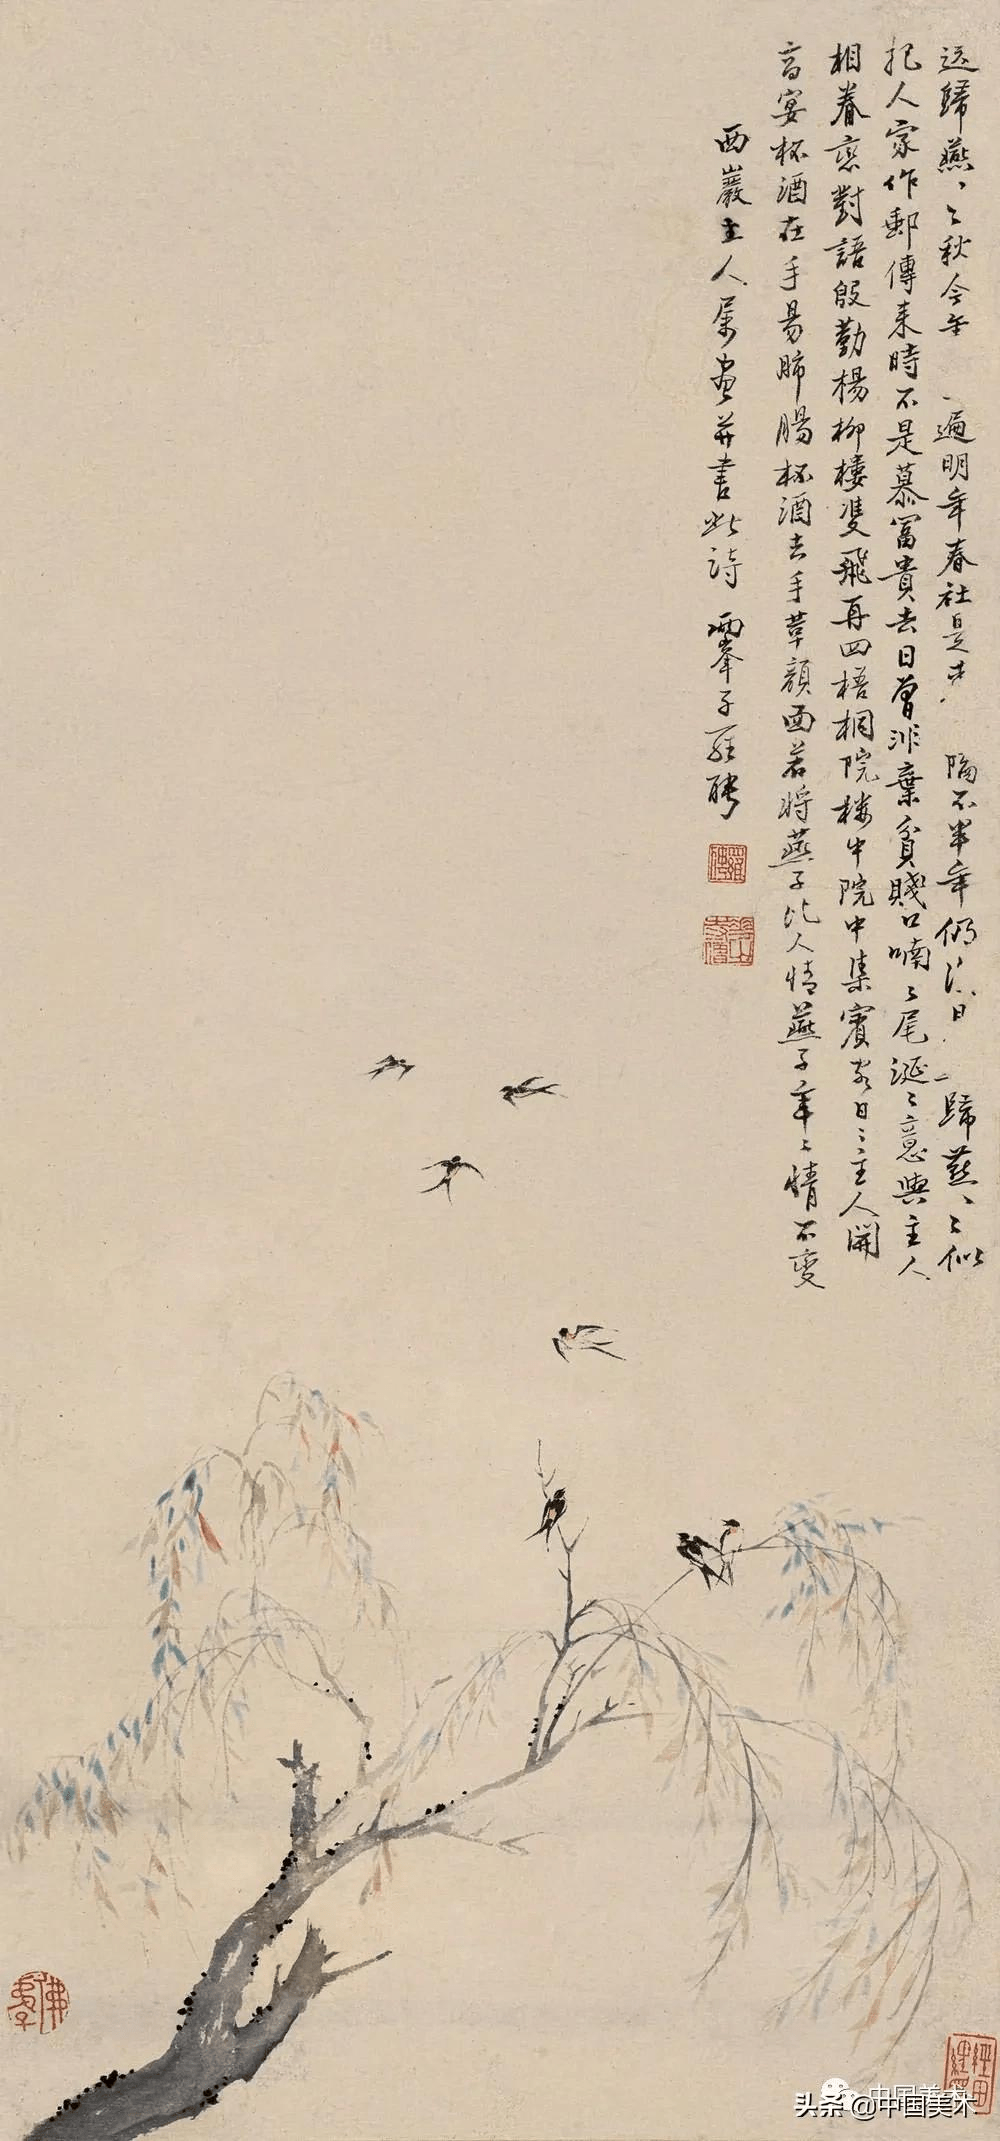 送歸燕〻〻秋今年一遍明年春社是
隔不半年仍日一歸燕〻〻似
把人家作郵傳来時不是慕冨貴去日曾非棄貧賤口喃〻尾涎〻意與主人
相眷戀對語殷勤楊柳樓雙飛再四梧桐院樓中院中集賓客日〻主人開
高宴杯酒在手易肺腸杯酒去手革顔面若將燕子比人情燕子年〻情不變
西巖主人属畫并書此詩 兩峯子羅聘
頭条@中国美术
中国美术